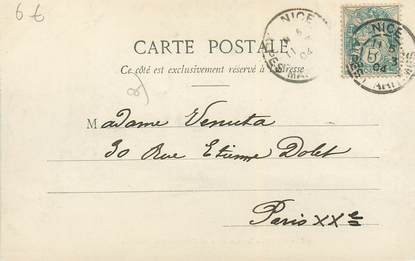 66
NICE
CARTE POSTALE
Ce côté est exclusivement réservé à l'adresse
Madame Venuta
30 Rue Etienne Dolet
Paris XXe